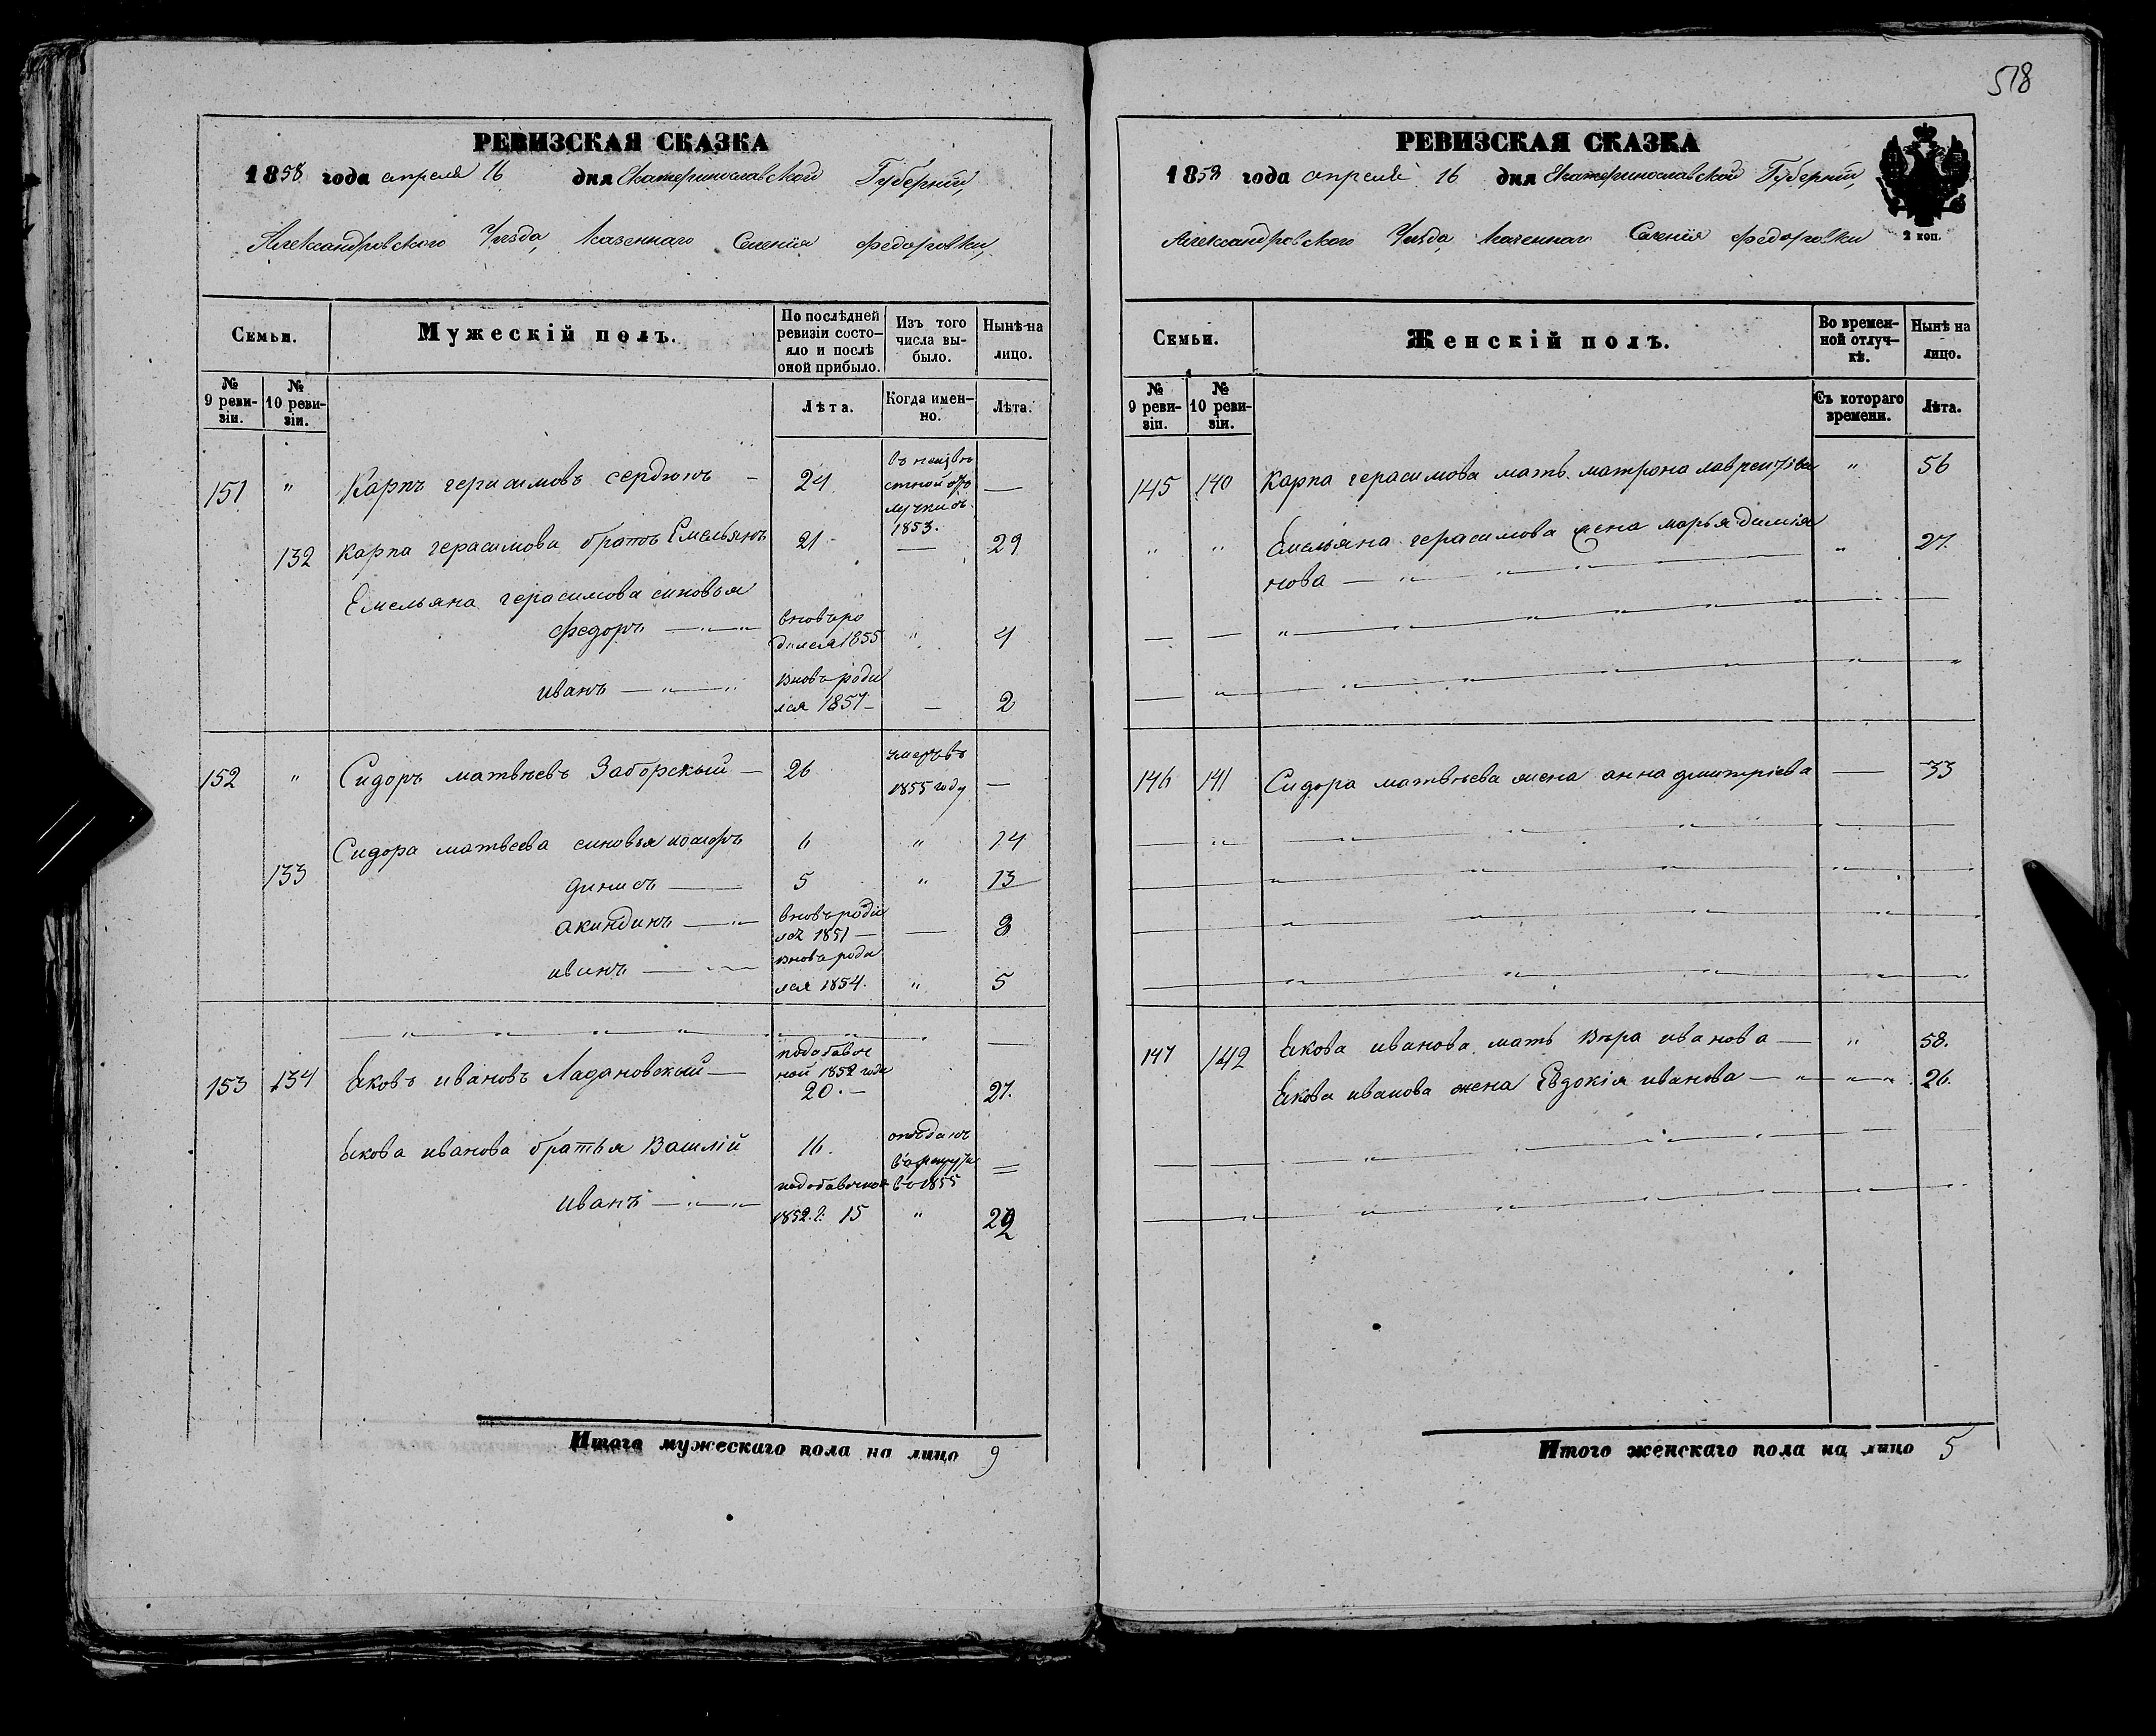 518
РЕВИЗСКАЯ СКАЗКА
1858 года апреля 16 дня Екатеринославской Губернии,
Александровского Уезда Казеннаго Селенія Федоровки,
Семьи.
Мужескій полъ.
По послѣдней ревизіи состо-яло и послѣ оной прибыло.
Изъ того числа вы-было.
Нынѣ на лицо.
№ 9 реви-зіи.
№ 10 реви-зіи.
Лѣта.
Когда имен-но.
Лѣта.
151 " Карпъ герасимовъ сердюкъ — 21 въ неизвѣ
стной от
лучки съ
1853. —
132 Карпа герасимова братъ Емельянъ 21 — 29
Емельяна герасимова синовья
федоръ вновь ро
дился 1855 " 4
иванъ вновь роди
лся 1857 — — 2
152 " Сидоръ матвѣевъ Заборскый — 26 умеръ въ
1855 году —
133 Сидора матвеева синовья 6 " 14
динисъ 5 " 13
акиндинъ вновь роди
лся 1851 — — 8
иванъ внова роди
лся 1854. " 5
153 134 Яковъ ивановъ Ладановский — подобавоч
ной 1852 года
20. — 27.
Якова иванова братья Василій 16. отъданъ
в
во 1855 =
иванъ подобавочной
1852. г. 15 " 22
Итого мужескаго пола на лицо 9
РЕВИЗСКАЯ СКАЗКА
1858 года апреля 16 дня Екатеринославской Губернии,
Александровского Уезда Казеннаго Селенія Федоровки
2 коп.
Семьи.
Женскій полъ.
Во времен-ной отлуч-кѣ.
Нынѣ на лицо.
№ 9 реви-зіи.
№ 10 реви-зіи.
Съ котораго времени.
Лѣта.
145 140 Карпа герасимова мать матрона лаврентіева " 56
" " Емельяна герасимова жена марья димія
нова — " 27.
146 141 Сидора матвѣева жена анна дмитріева — 33
147 142 Якова иванова мать Вѣра иванова — " 58.
Якова иванова жена Евдокія иванова — " 26.
Итого женскаго пола на лицо 5